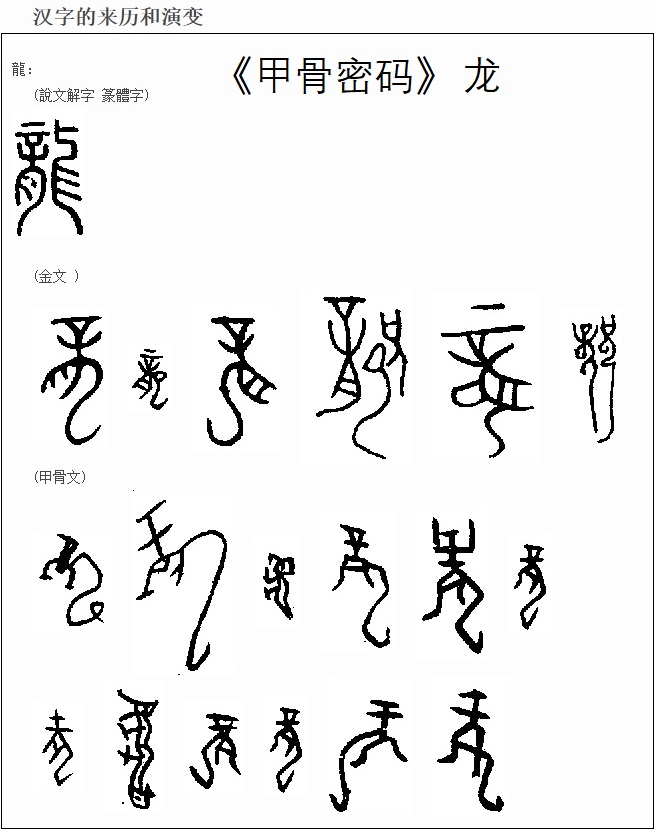 汉字的来历和演变
《甲骨密码》 龙
龍：
(說文解字 篆體字)
龍
(金文 )
(甲骨文)